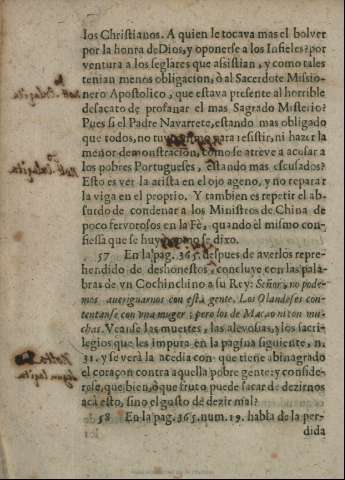 los Christianos. A quien le tocava mas el bolver
por la honra de Dios, y oponerse a los Infieles? por
ventura a los seglares que assistian, y como tales
tenian menos obligacion, ò al Sacerdote Missio-
nero Apostolico, que estava presente al horrible
desacato de profanar el mas Sagrado Misterio?
Pues si el Padre Navarrete, estando mas obligado
que todos, no tuvo para resistir, ni hazer la
menor demonstracion, como se atreve a acusar a
los pobres Portugueses, estando mas escusados?
Esto es ver la arista en el ojo ageno, y no reparar
la viga en el proprio. Y tambien es repetir el ab-
surdo de condenar a los Ministros de China de
poco fervorosos en la Fè, quando èl mismo con-
fiessa que se huyò, como se dixo.
57 En la pag. 365. despues de averlos repre-
hendido de deshonestos, concluye con las pala-
bras de vn Cochinchino a su Rey: Señor, no pode-
mos aueriguarnos con esta gente. Los Olandeses con-
tentanse con vna muger; pero los de Macao ni con mu-
chas. Veanse las muertes, las alevosias, y los sacri-
legios que les impura en la pagina siguiente, n.
31. y se verà la acedia con que tiene abinagrado
el coraçon contra aquella pobre gente: y conside-
rese, que bien, ò que fruto puede sacar de dezirnos
acà esto, sino el gusto de dezir mal?
58 En la pag. 365. num. 19. habla de la per-
dida